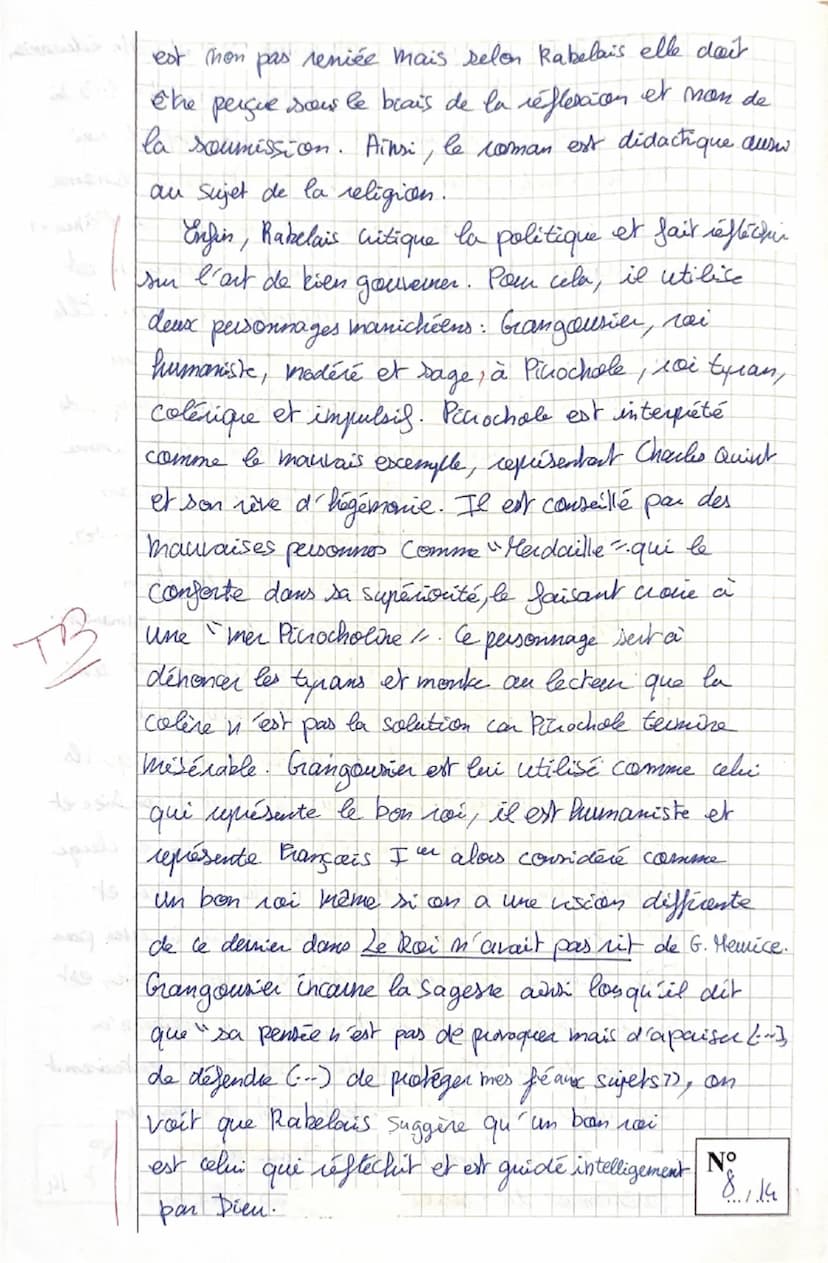 est non pas reniée mais selon Rabelais elle doit
être perçue sous le biais de la réflexion et non de
la soumission. Ainsi, le roman est didactique aussi
au sujet de la religion.
Enfin, Rabelais critique la politique et fait réfléchir
sur l'art de bien gouverner. Pour cela, il utilise
deux personnages manichéens : Grangousier, roi
humaniste, modéré et sage, à Picrochole, roi tyran,
colérique et impulsif. Picrochole est interprété
comme le mauvais excemple, représentant Charles Quint
et son rêve d'hégémonie. Il est conseillé par des
mauvaises personnes comme "Merdaille" qui le
conforte dans sa supériorité, le faisant croire à
une "mer Picrocholine". Ce personnage sert à
TB
dénoncer les tyrans et montre au lecteur que la
colère n'est pas la solution car Picrochole termine
misérable. Grangousier est lui utilisé comme celui
qui représente le bon roi, il est humaniste et
représente François Ier alors considéré comme
un bon roi même si on a une vision différente
de ce dernier dans Le Roi n'avait pas rit de G. Meurice.
Grangousier incarne la sagesse ainsi lorsqu'il dit
que "sa pensée n'est pas de provoquer mais d'apaiser (...),
de défendre (...) de protéger mes féaux sujets", on
voit que Rabelais suggère qu'un bon roi
est celui qui réfléchit et est guidé intelligement
par Dieu.
N°
8/14